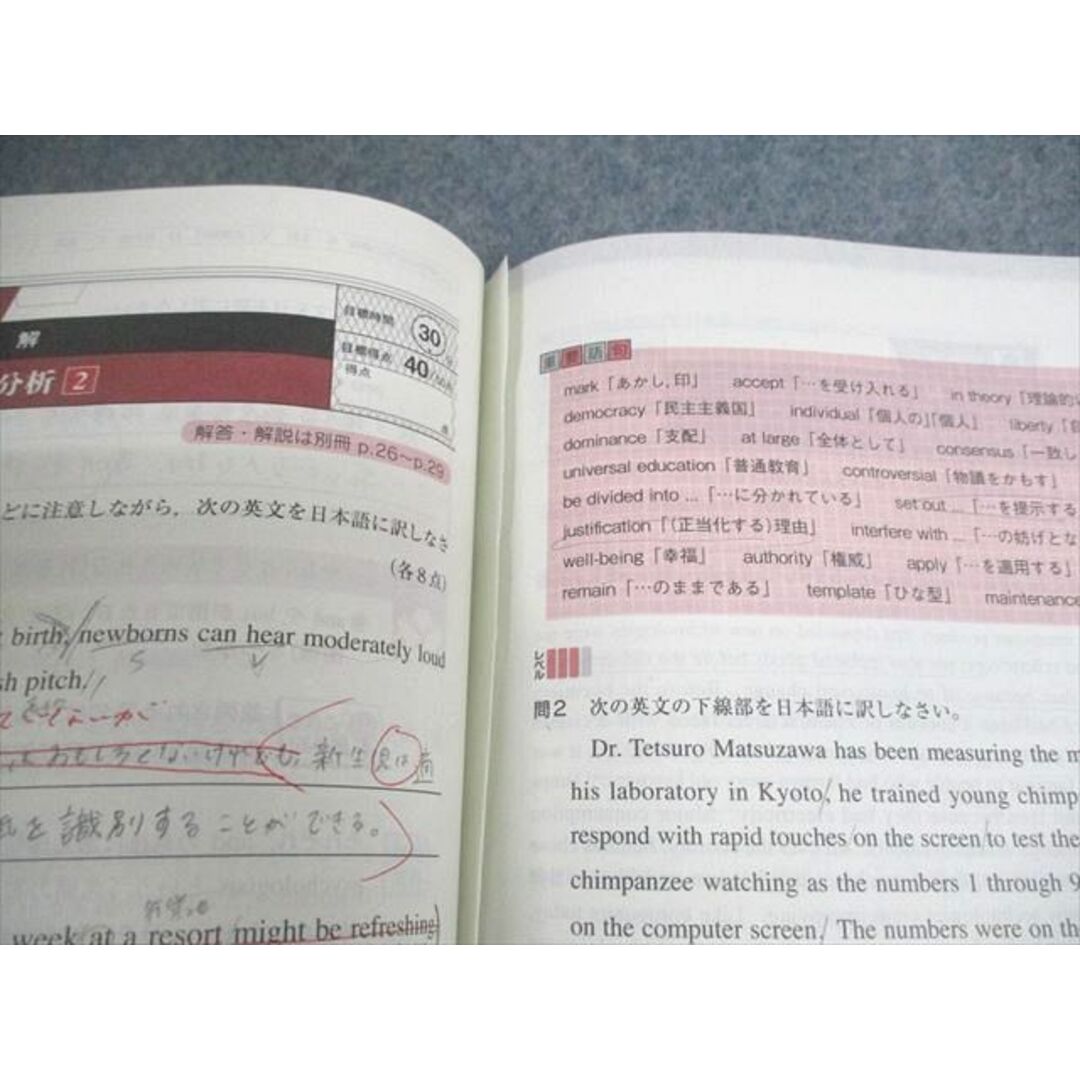 解
分析 2
目標時間 30分
目標得点 40/50点
得点
点
解答・解説は別冊 p.26〜p.29
どに注意しながら，次の英文を日本語に訳しなさ
(各8点)
birth, newborns can hear moderately loud
S V
sh pitch.
新生児は適
を識別することができる。
week at a resort might be refreshing
重要語句
mark「あかし，印」 accept「…を受け入れる」 in theory「理論的
democracy「民主主義国」 individual「個人の」「個人」 liberty「自
dominance「支配」 at large「全体として」 consensus「一致し
universal education「普通教育」 controversial「物議をかもす」
be divided into ...「…に分かれている」 set out ...「…を提示する
justification「(正当化する)理由」 interfere with ...「…の妨げとな
well-being「幸福」 authority「権威」 apply「…を適用する」
remain「…のままである」 template「ひな型」 maintenance
レベル
問2 次の英文の下線部を日本語に訳しなさい。
Dr. Tetsuro Matsuzawa has been measuring the m
his laboratory in Kyoto, he trained young chimp
respond with rapid touches on the screen to test the
chimpanzee watching as the numbers 1 through 9
on the computer screen. The numbers were on th